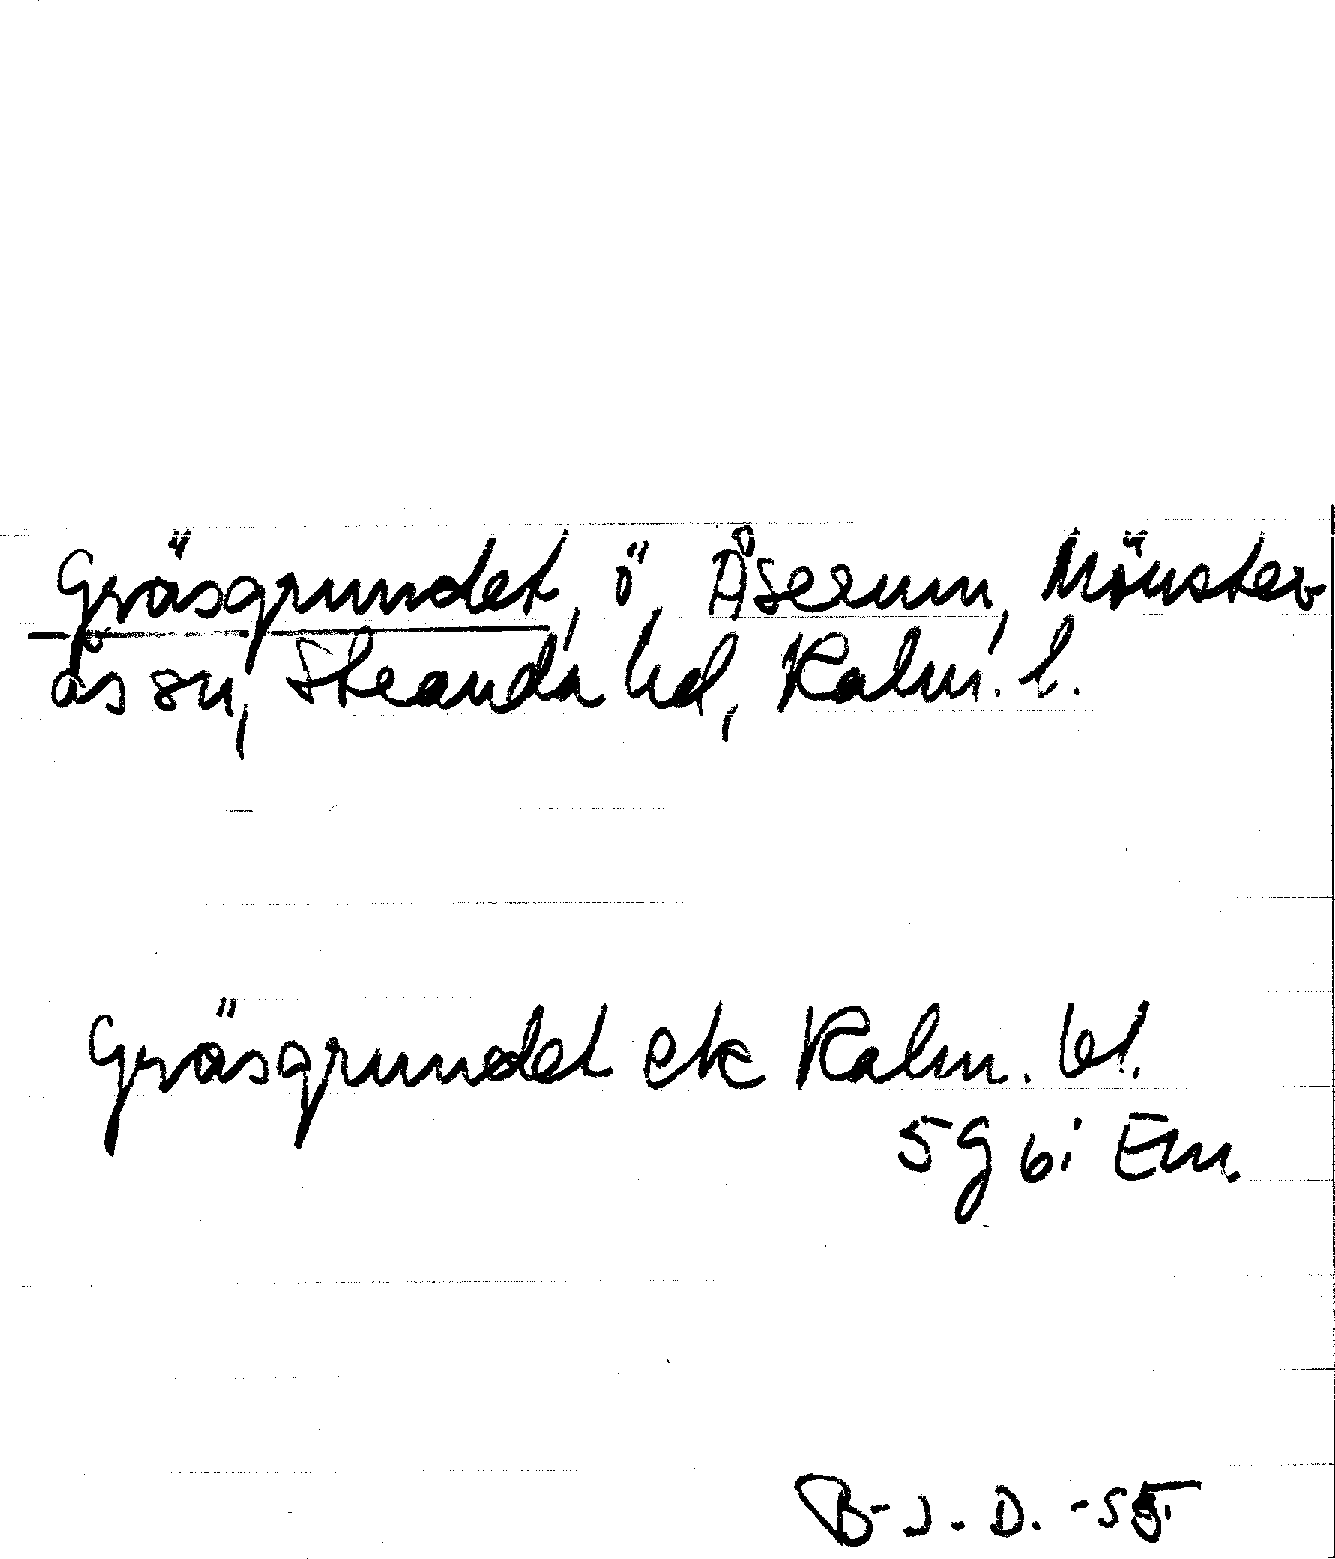 Gräsgrundet, ö, Åserum, Mönster
ås sn, Stranda hd, Kalm. l.
Gräsgrundet ek Kalm. bl.
5g bi Em.
B-J.D. -55.